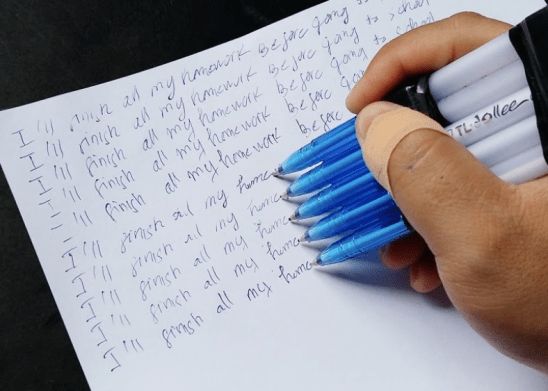 I'll finish all my homework before going
I'll finish all my homework before going to school
I'll finish all my homework before going to school
I'll finish all my homework before going
I'll finish all my homework before
I'll finish all my home
I'll finish all my home
I'll finish all my home
I'll finish all my home
I'll finish all my home